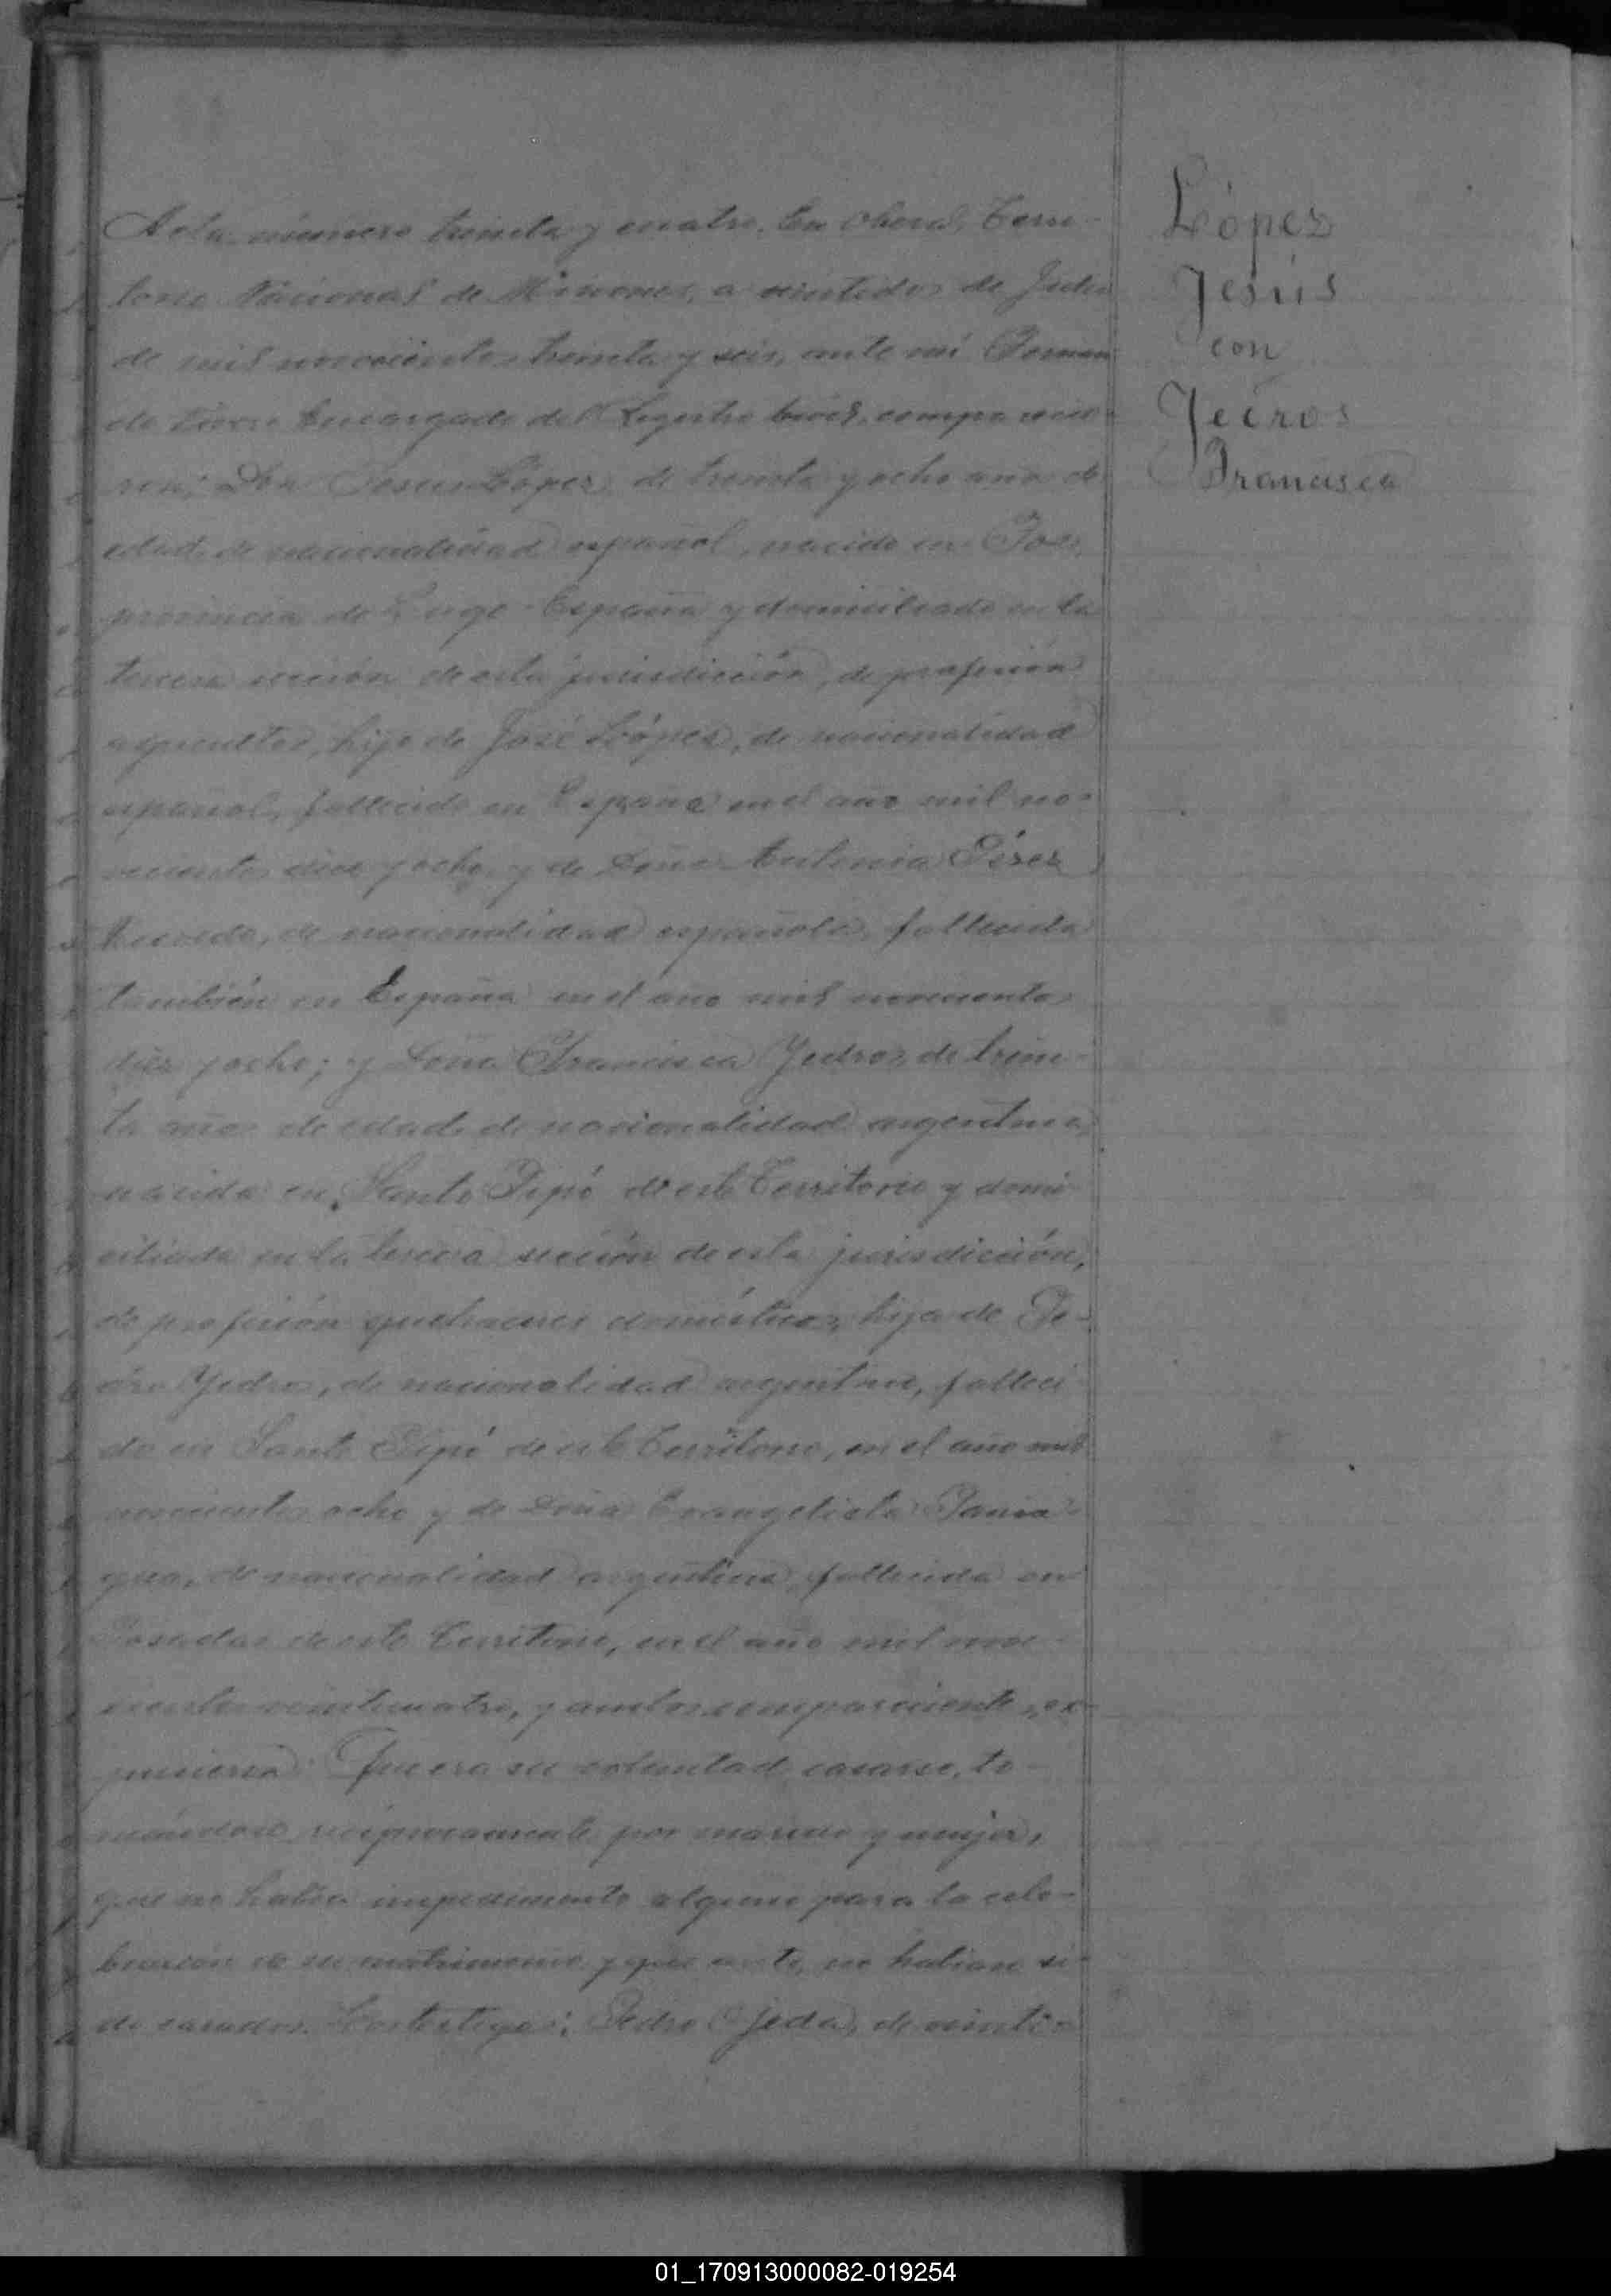 Acta número treinta y cuatro. En Oberá, Terri-
torio Nacional de Misiones, a veintidos de Julio
de mil novecientos treinta y seis, ante mí
Encargado del Registro Civil, comparecie-
ron; Don Jesus López, de treinta y ocho años de
edad, de nacionalidad español, nacido en
provincia de Lugo - España y domiciliado en la
tercera sección de esta jurisdicción, de profesión
agricultor, hijo de José López, de nacionalidad
español, fallecido en España en el año mil no-
vecientos diez y ocho, y de Doña Antonia Pérez
de nacionalidad española, fallecida
también en España en el año mil novecientos
diez y ocho; y Doña Francisca Yedros, de trein-
ta años de edad, de nacionalidad argentina,
nacida en Santo Pipó de este Territorio y domi-
ciliada en la tercera sección de esta jurisdicción,
de profesión quehaceres domésticos, hija de Pe-
dro Yedros, de nacionalidad argentino, falleci-
do en Santo Pipó de este Territorio, en el año mil
novecientos ocho y de Doña Evangelista Pania-
gua, de nacionalidad argentina, fallecida en
Posadas de este Territorio, en el año mil nove-
cientos veinticuatro, y ambos comparecientes, ex-
pusieron: Que era su voluntad casarse, to-
mándose recíprocamente por marido y mujer,
que no había impedimento alguno para la cele-
bración de su matrimonio y que antes no habían si-
do casados. Los testigos: Pedro Ojeda, de veinti-
López
Jesús
con
Yeiros
Francisca
01_170913000082-019254